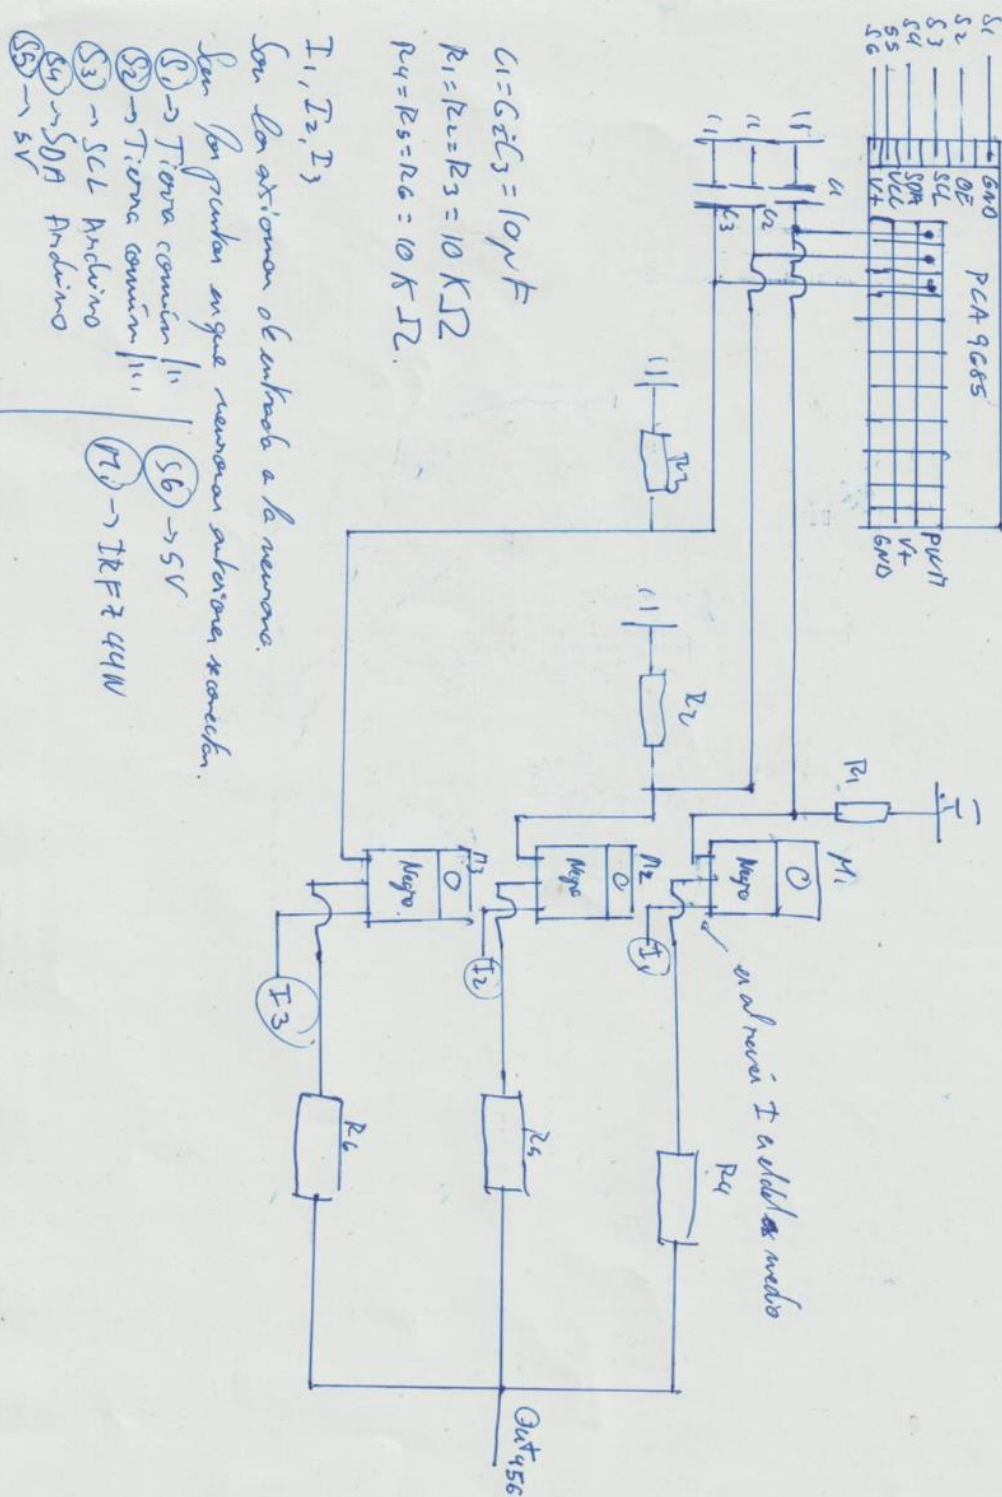 S1
S2
S3
S4
S5
S6
GND
OE
SCL
SDA
VCC
V+
PCA 9685
PWM
V+
GND
C1
C2
C3
R1
R2
R3
M1
Negro
M2
Negro
M3
Negro.
I1
I2
I3
en al revés I es el del medio
R4
R5
R6
Out456
C1=C2=C3=10µF
R1=R2=R3=10 KΩ
R4=R5=R6=10 KΩ.
I1, I2, I3
Son los axiomas de entrada a la neurona.
Son los puntos en que neuronas anteriores se conectan.
S1 → Tierra común
S2 → Tierra común
S3 → SCL Arduino
S4 → SDA Arduino
S5 → 5V
S6 → 5V
Mi → IRFZ44N